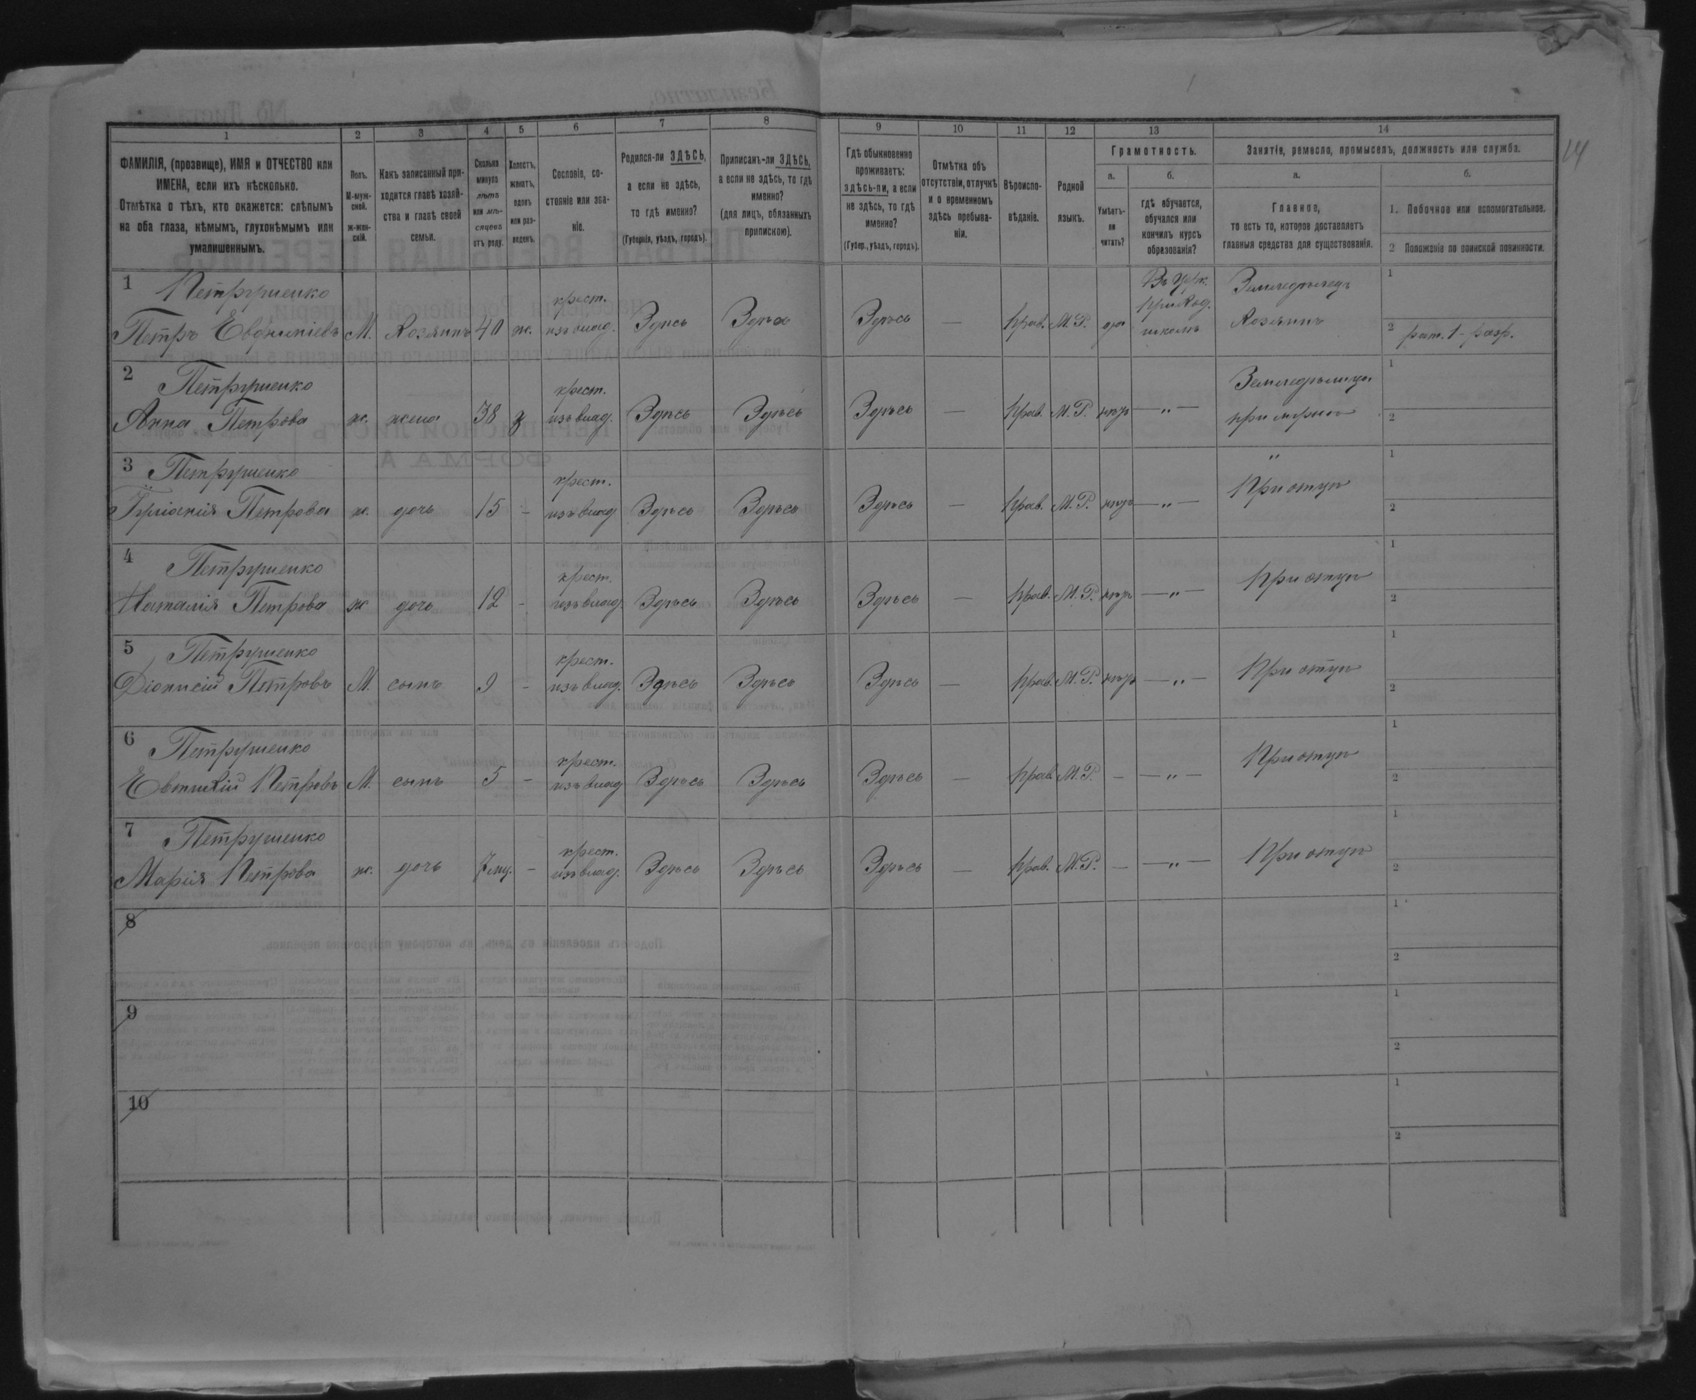 14
1 2 3 4 5 6 7 8 9 10 11 12 13 14
ФАМИЛІЯ, (прозвище), ИМЯ и ОТЧЕСТВО или
ИМЕНА, если ихъ нѣсколько.
Отмѣтка о тѣхъ, кто окажется: слѣпымъ
на оба глаза, нѣмымъ, глухонѣмымъ или
умалишеннымъ.
Полъ.
М-мужской.
ж-женскій.
Какъ записанный приходится главѣ хозяйства и главѣ своей семьи.
Сколько
минуло
лѣтъ
или мѣсяцевъ
отъ роду.
Холостъ,
женатъ,
вдовъ
или разведенъ.
Сословіе, состояніе или званіе.
Родился-ли ЗДѢСЬ,
а если не здѣсь,
то гдѣ именно?
(Губернія, уѣздъ, городъ).
Приписанъ-ли ЗДѢСЬ,
а если не здѣсь, то гдѣ
именно?
(для лицъ, обязанныхъ
припискою).
Гдѣ обыкновенно
проживаетъ:
здѣсь-ли, а если
не здѣсь, то гдѣ
именно?
(Губер., уѣздъ, городъ).
Отмѣтка объ
отсутствіи, отлучкѣ
и о временномъ
здѣсь пребываніи.
Вѣроисповѣданіе.
Родной
языкъ.
Грамотность.
а.
Умѣетъ-ли
читать?
б.
гдѣ обучается,
обучался или
кончилъ курсъ
образованія?
Занятіе, ремесло, промыселъ, должность или служба.
а.
Главное,
то есть то, которое доставляетъ
главныя средства для существованія.
б.
1. Побочное или вспомогательное.
2 Положеніе по воинской повинности.
1 Петрушенко
Петръ Евфиміевъ М. Хозяинъ 40 ж. крест. изъ влад. Здѣсь Здѣсь Здѣсь — прав. М.Р. да Въ Црк. приход. школѣ Земледѣлецъ Хозяинъ 1
2 рат. 1-разр.
2 Петрушенко
Анна Петрова ж. жена 38 з крест. изъ влад. Здѣсь Здѣсь Здѣсь — прав. М.Р. нѣтъ —„— Земледѣлица при мужѣ 1
2
3 Петрушенко
Петрова ж. дочь 15 - крест. изъ влад. Здѣсь Здѣсь Здѣсь — прав. М.Р. нѣтъ —„— „ При отцѣ 1
2
4 Петрушенко
Наталія Петрова ж дочь 12 - крест. изъ влад. Здѣсь Здѣсь Здѣсь — прав. М.Р. нѣтъ —„— При отцѣ 1
2
5 Петрушенко
Діонисій Петровъ М. сынъ 9 - крест. изъ влад. Здѣсь Здѣсь Здѣсь — прав. М.Р. нѣтъ —„— При отцѣ 1
2
6 Петрушенко
Евтихій Петровъ М. сынъ 5 - крест. изъ влад. Здѣсь Здѣсь Здѣсь — прав. М.Р. — —„— При отцѣ 1
2
7 Петрушенко
Марія Петрова ж. дочь - крест. изъ влад. Здѣсь Здѣсь Здѣсь — прав. М.Р. — —„— При отцѣ 1
2
8 1
2
9 1
2
10 1
2